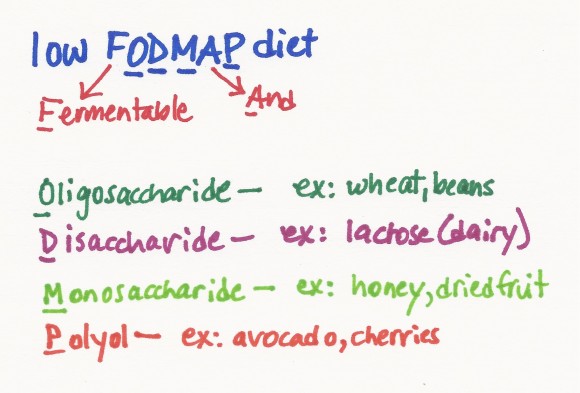 low FODMAP diet
Fermentable And
Oligosaccharide — ex: wheat, beans
Disaccharide — ex: lactose (dairy)
Monosaccharide — ex: honey, dried fruit
Polyol — ex: avocado, cherries